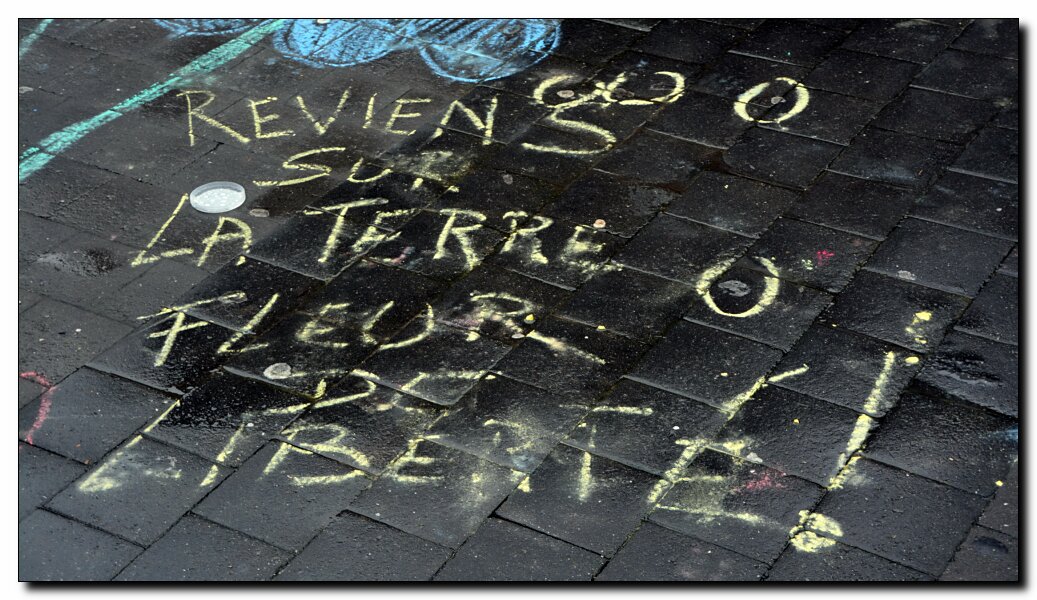 REVIENS
SUR
LA TERRE
FLEUR
DE
LIBERTÉ!